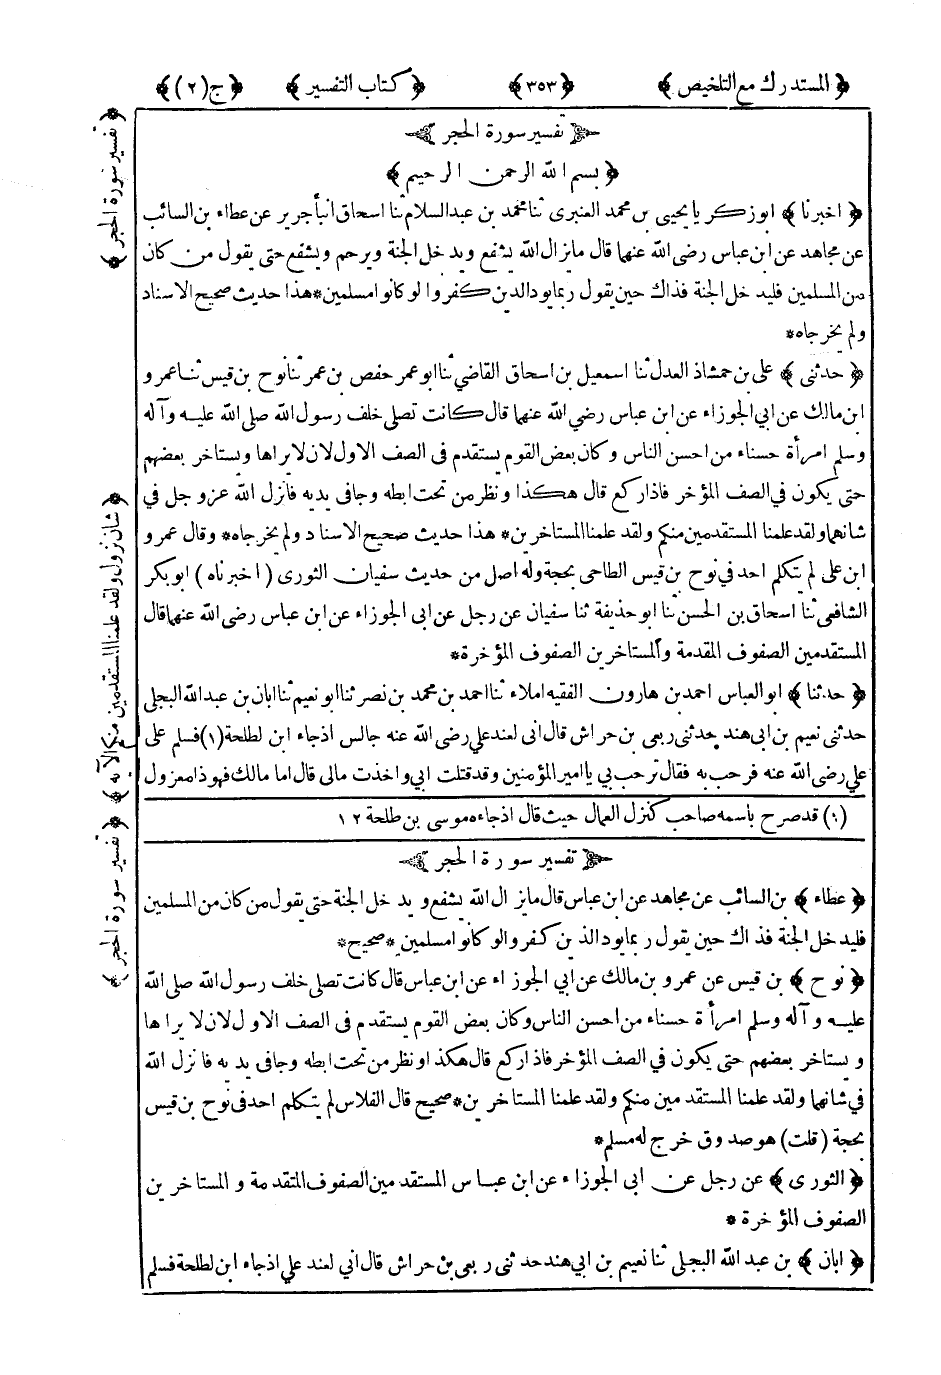 ﴿ المستدرك مع التلخيص ﴾ ﴿ ٣٥٣ ﴾ ﴿ كتاب التفسير ﴾ ﴿ ج (٢) ﴾
تفسير سورة الحجر
﴿ بسم الله الرحمن الرحيم ﴾
﴿ اخبرنا ﴾ ابو زكريا يحيى بن محمد العنبرى ثنا محمد بن عبد السلام ثنا اسحاق انبأ جرير عن عطاء بن السائب
عن مجاهد عن ابن عباس رضى الله عنهما قال ما يزال الله يشفع ويدخل الجنة ويرحم ويشفع حتى يقول من كان
من المسلمين فليدخل الجنة فذاك حين يقول ربما يود الذين كفروا لو كانوا مسلمين * هذا حديث صحيح الاسناد
ولم يخرجاه *
﴿ حدثنى ﴾ على بن حمشاذ العدل ثنا اسمعيل بن اسحاق القاضي ثنا ابو عمر حفص بن عمر ثنا نوح بن قيس ثنا عمرو
ابن مالك عن ابي الجوزاء عن ابن عباس رضي الله عنهما قال كانت تصلى خلف رسول الله صلى الله عليه وآله
وسلم امرأة حسناء من احسن الناس وكان بعض القوم يستقدم فى الصف الاول لان لا يراها ويستاخر بعضهم
حتى يكون في الصف المؤخر فاذا ركع قال هكذا ونظر من تحت ابطه وجافى يديه فانزل الله عز وجل في
شانها ولقد علمنا المستقدمين منكم ولقد علمنا المستاخرين * هذا حديث صحيح الاسناد ولم يخرجاه * وقال عمرو
ابن على لم يتكلم احد في نوح بن قيس الطاحى بحجة وله اصل من حديث سفيان الثورى ( اخبرناه ) ابو بكر
الشافعى ثنا اسحاق بن الحسن ثنا ابو حذيفة ثنا سفيان عن رجل عن ابى الجوزاء عن ابن عباس رضى الله عنهما قال
المستقدمين الصفوف المقدمة والمستاخرين الصفوف المؤخرة *
﴿ حدثنا ﴾ ابو العباس احمد بن هارون الفقيه املاء ثنا احمد بن محمد بن نصر ثنا ابو نعيم ثنا ابان بن عبد الله البجلى
حدثنى نعيم بن ابى هند حدثنى ربعى بن حراش قال انى لعند علي رضى الله عنه جالس اذ جاء ابن لطلحة (١) فسلم على
علي رضى الله عنه فرحب به فقال ترحب بي يا امير المؤمنين وقد قتلت ابي واخذت مالى قال اما مالك فهو ذا معزول
(١) قد صرح باسمه صاحب كنز العمال حيث قال اذ جاءه موسى بن طلحة ١٢
تفسير سورة الحجر
﴿ عطاء ﴾ بن السائب عن مجاهد عن ابن عباس قال ما يزال الله يشفع ويدخل الجنة حتى يقول من كان من المسلمين
فليدخل الجنة فذاك حين يقول ربما يود الذين كفروا لو كانوا مسلمين * صحيح *
﴿ نوح ﴾ بن قيس عن عمرو بن مالك عن ابي الجوزاء عن ابن عباس قال كانت تصلى خلف رسول الله صلى الله
عليه وآله وسلم امرأة حسناء من احسن الناس وكان بعض القوم يستقدم فى الصف الاول لان لا يراها
ويستاخر بعضهم حتى يكون في الصف المؤخر فاذا ركع قال هكذا ونظر من تحت ابطه وجافى يديه فانزل الله
في شانها ولقد علمنا المستقدمين منكم ولقد علمنا المستاخرين * صحيح قال الفلاس لم يتكلم احد فى نوح بن قيس
بحجة ( قلت ) هو صدوق خرج له مسلم *
﴿ الثورى ﴾ عن رجل عن ابى الجوزاء عن ابن عباس المستقدمين الصفوف المتقدمة والمستاخرين
الصفوف المؤخرة *
﴿ ابان ﴾ بن عبد الله البجلى ثنا نعيم بن ابي هند حدثنى ربعى بن حراش قال اني لعند علي اذ جاء ابن لطلحة فسلم
﴿ تفسير سورة الحجر ﴾
﴿ شان نزول ولقد علمنا المستقدمين منكم الآيه ﴾
﴿ تفسير سورة الحجر ﴾